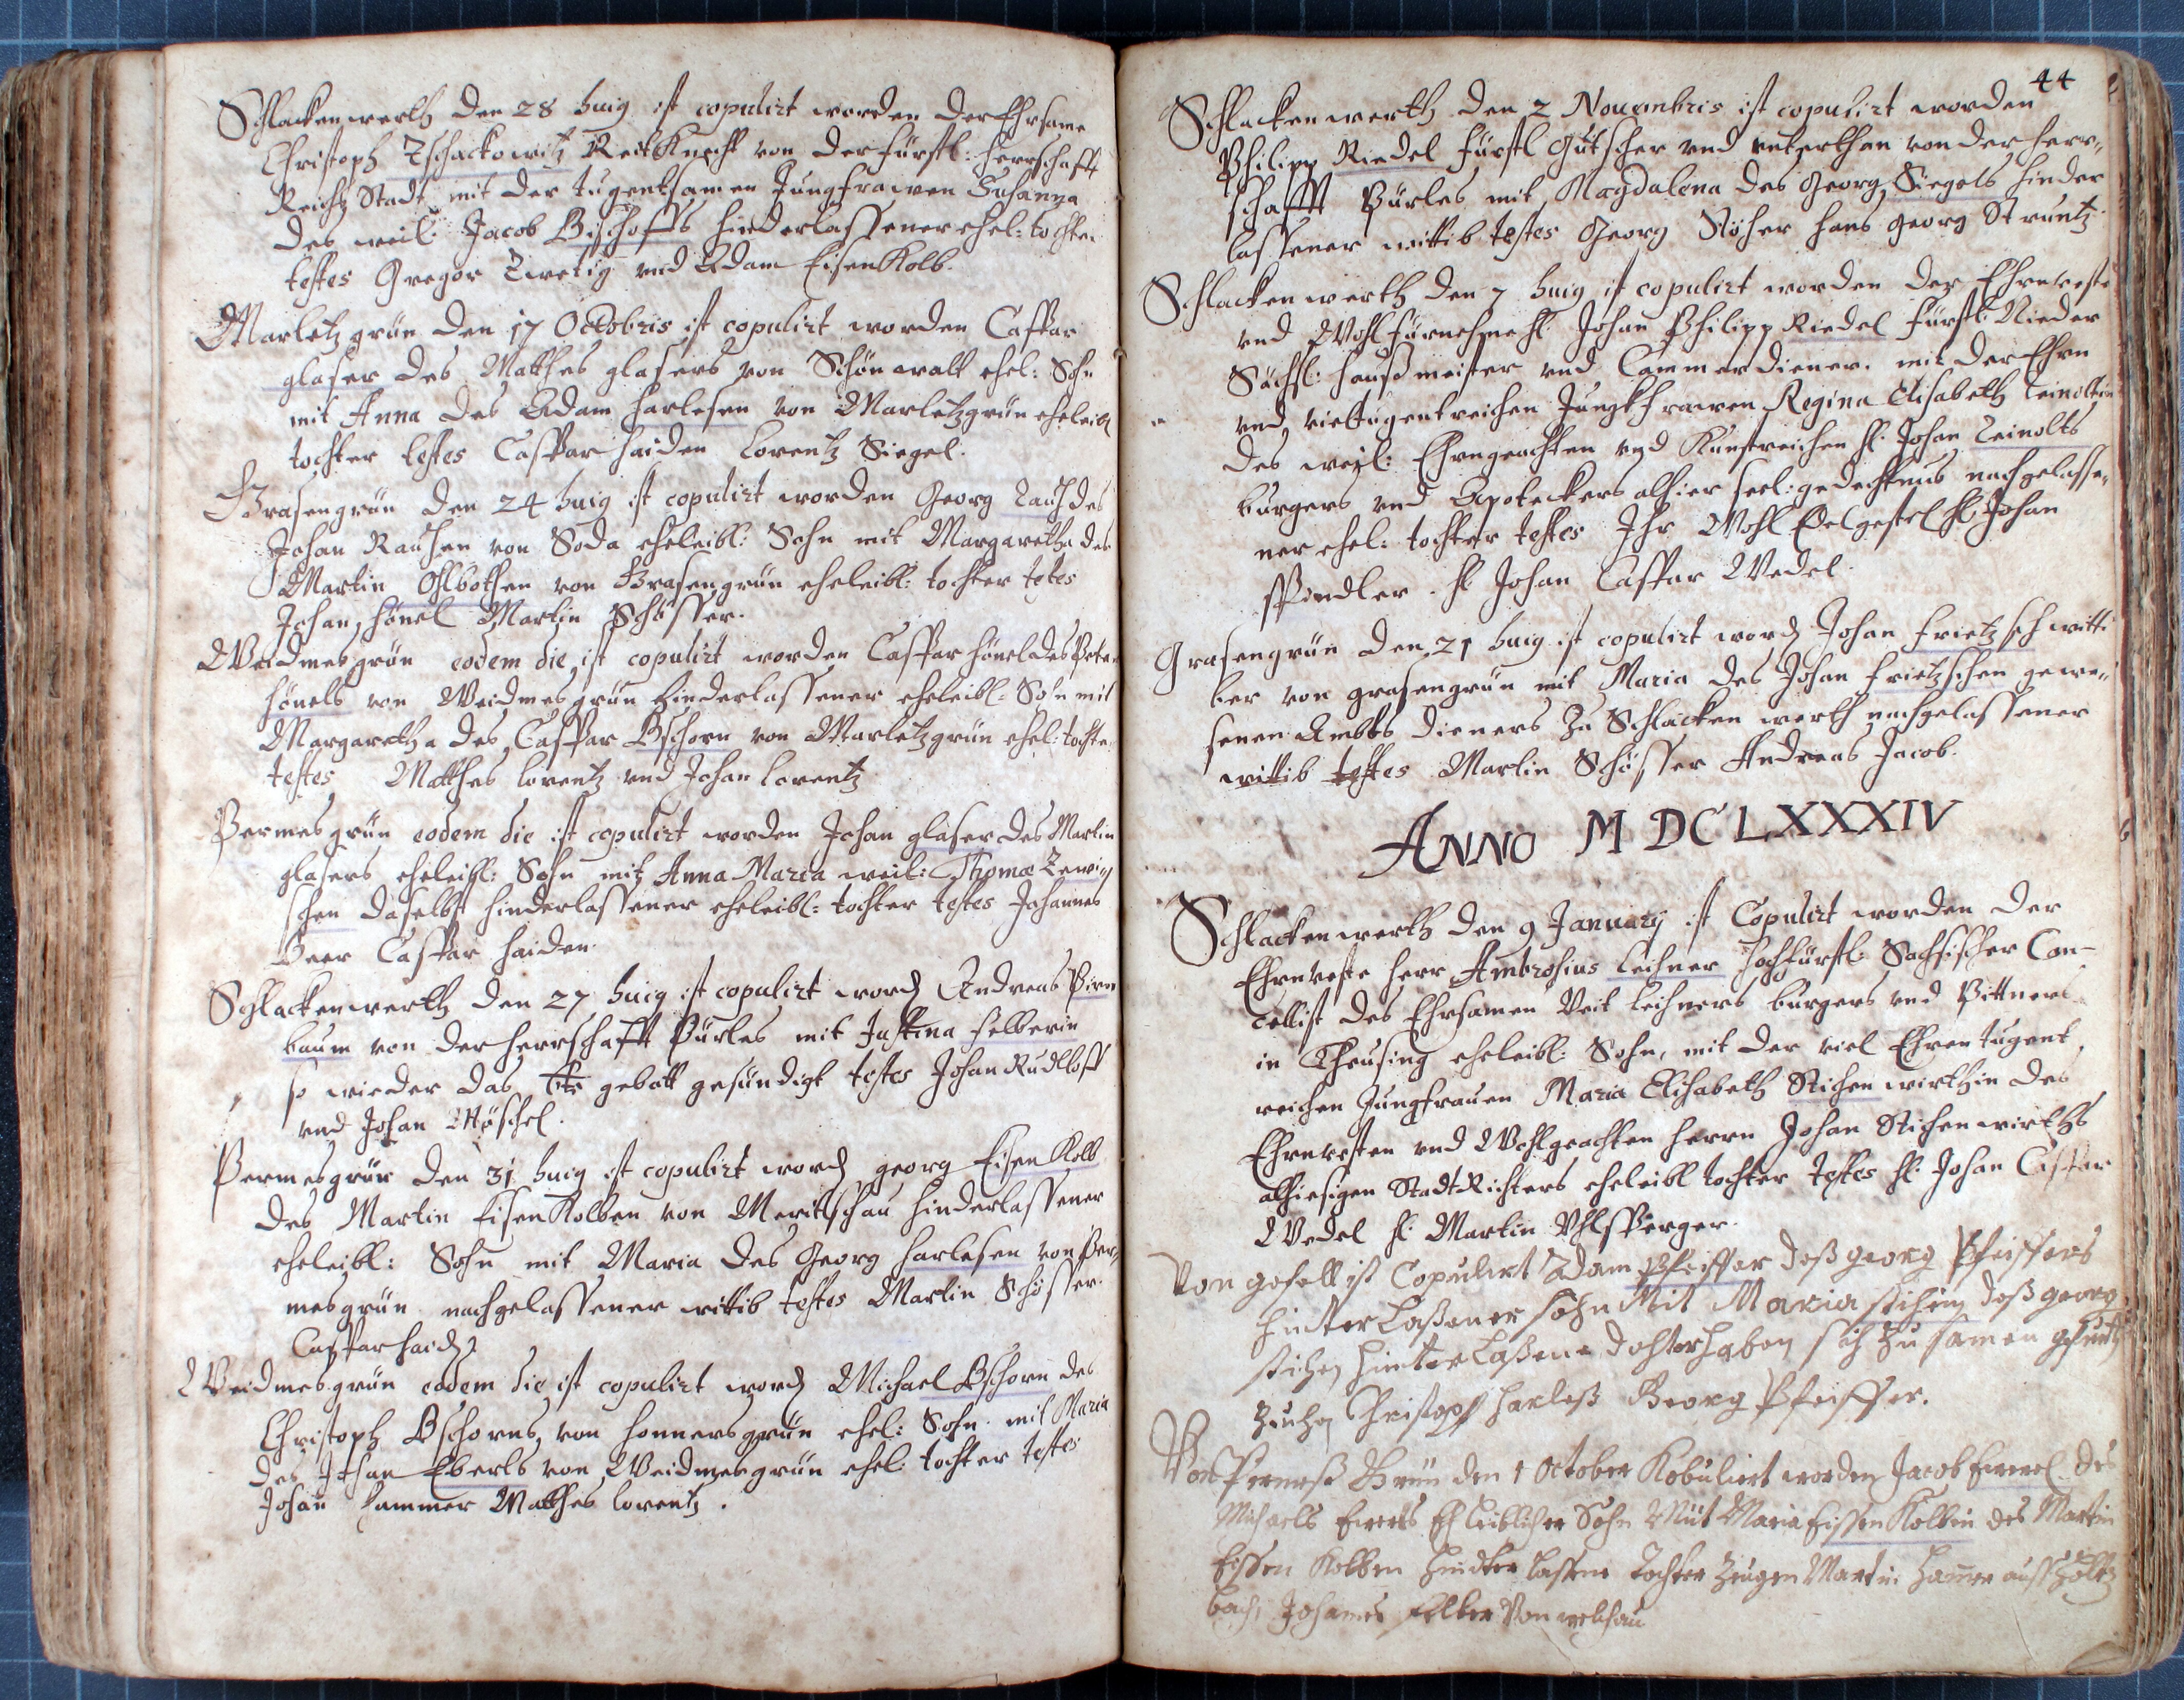 Schlackenwerth den 28 huig ist copulirt worden der Ehrsame
Christoph Tschackowitz ReitKnecht von der fürstl: herrschafft
Reichstadt mit der tugentsamen Jungfrawen Susanna
des weil: Jacob Bischoffs hinderlassener ehel: tochter
testes Gregor Zwetig vnd Adam EisenKolb.
Marletzgrün den 17 Octobris ist copulirt worden Caspar
glaser des Matthes glasers von Schönwalt ehel: Sohn
mit Anna des Adam harlesen von Marletzgrün eheleibl
tochter testes Caspar haiden Lorentz Siegel.
Grasengrün den 24 huig ist copulirt worden Georg Rausch des
Johan Rauschen von Soda eheleibl: Sohn mit Margaretha des
Martin von Grasengrün eheleibl: tochter testes
Johan hönel Martin Schösser.
Weidmesgrün eodem die ist copulirt worden Caspar hönel des Peter
hönels von Weidmesgrün hinderlassener eheleibl: Sohn mit
Margaretha des Caspar Bschorn von Marletzgrün ehel: tochter
testes Matthes lorentz vnd Johan lorentz
Permesgrün eodem die ist copulirt worden Johan glaser des Martin
glasers eheleibl: Sohn mit Anna Maria weil: Thomæ
schen daselbst hinderlassener eheleibl: tochter testes Johannes
Beer Caspar haiden.
Schlackenwerth den 27 huig ist copulirt word Andreas Birn
baum von der herrschafft Pürles mit Justina felberin
so wieder das 6te gebott gesündigt testes Johan Rudloff
vnd Johan Möschel.
Permesgrün den 31 huig ist copulirt word georg EisenKolb
des Martin EisenKolben von Meritschau hinderlassener
eheleibl: Sohn mit Maria des Georg harlesen von Per„
mesgrün nachgelassener wittib testes Martin Schösser.
Caspar haid
Weidmesgrün eodem die ist copulirt word Michael Bschorn des
Christoph Bschorns von honnersgrün ehel: Sohn mit Maria
des Johan Eberls von Weidmesgrün ehel: tochter testes
Johan hammer Matthes lorentz.
44
Schlackenwerth den 2 Nouembris ist copulirt worden
Philipp Riedel fürstl Gutscher vnd vnterthan von der herr„
schafft Pürles mit Magdalena des Georg Siegels hinder
lassener wittib testes Georg hans georg Struntz.
Schlackenwerth den 7 huig ist copulirt worden der Ehrnveste
vnd Wohlfürnehme H. Johan Philipp Riedel fürstl: Nieder
Sächsl: haußmeister vnd Cammerdiener. mit der Ehrn
vnd vieltugentreichen Jungkfrawen Regina Elisabeth Leinoltin
des weyl: Ehrngeachten vnd Kunstreichen H. Johan Leinolts
burgers vnd Apoteckers alhier seel: gedechtnus nachgelasse„
ner ehel: tochter testes Ihr Wohl Edelgestrel H. Johan
Spindler. H. Johan Caspar Wedel.
Grasengrün den 21 huig ist copulirt word Johan frietzsch witti
ber von grasengrün mit Maria des Johan frietzschen gewe„
senen Ambtsdieners zu Schlackenwerth nachgelassener
wittib testes Martin Schösser Andreas Jacob.
ANNO MDCLXXXIV
Schlackenwerth den 9 January ist Copulirt worden der
Ehrnveste herr Ambrosius Leihner hochfürstl: Sachsischer Can-
cellist des Ehrsamen Veit Leihners burgers vnd Bittners
in Theusing eheleibl: Sohn, mit der viel Ehren tugent,
reichen Jungfrauen Maria Elisabeth Stichenwirthin des
Ehrnvesten vnd Wohlgeachten herrn Johan Stichenwirths
alhiesigen StadtRichters eheleibl tochter testes H. Johan Caspar
Wedel H. Martin Vhlsperger.
Von gesell ist Copulirt Adam Pfeiffer deß georg Pfeiffers
hinterlaßener sohn Mit Maria stihin deß georg
stihen hinterlaßene dochter haben sich zu samen
Christoph harleß Georg Pfeiffer.
Von Permeß Grün den 1 October Kobulirt worden Jacob des
Michaels Ehleiblicher Sohn Mit Maria Eissen Kolbin des Martin
Eissen Kolben hindterlassene Tochter zeugen Martin hamer auß holtz
bach, Johanes felber Von welchau